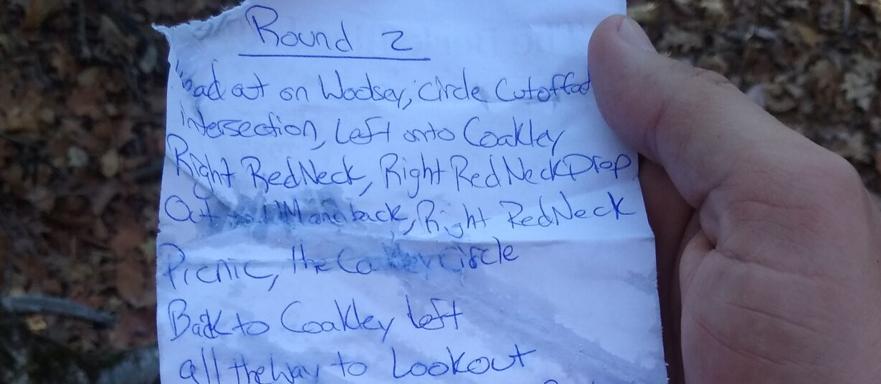 Round 2
out on Woodsey, Circle Cutoff at
intersection, Left onto Coakley
Right RedNeck, Right RedNeckDrop
Out and back, Right RedNeck
Picnic, the Coakley Circle
Back to Coakley left
all the way to Lookout